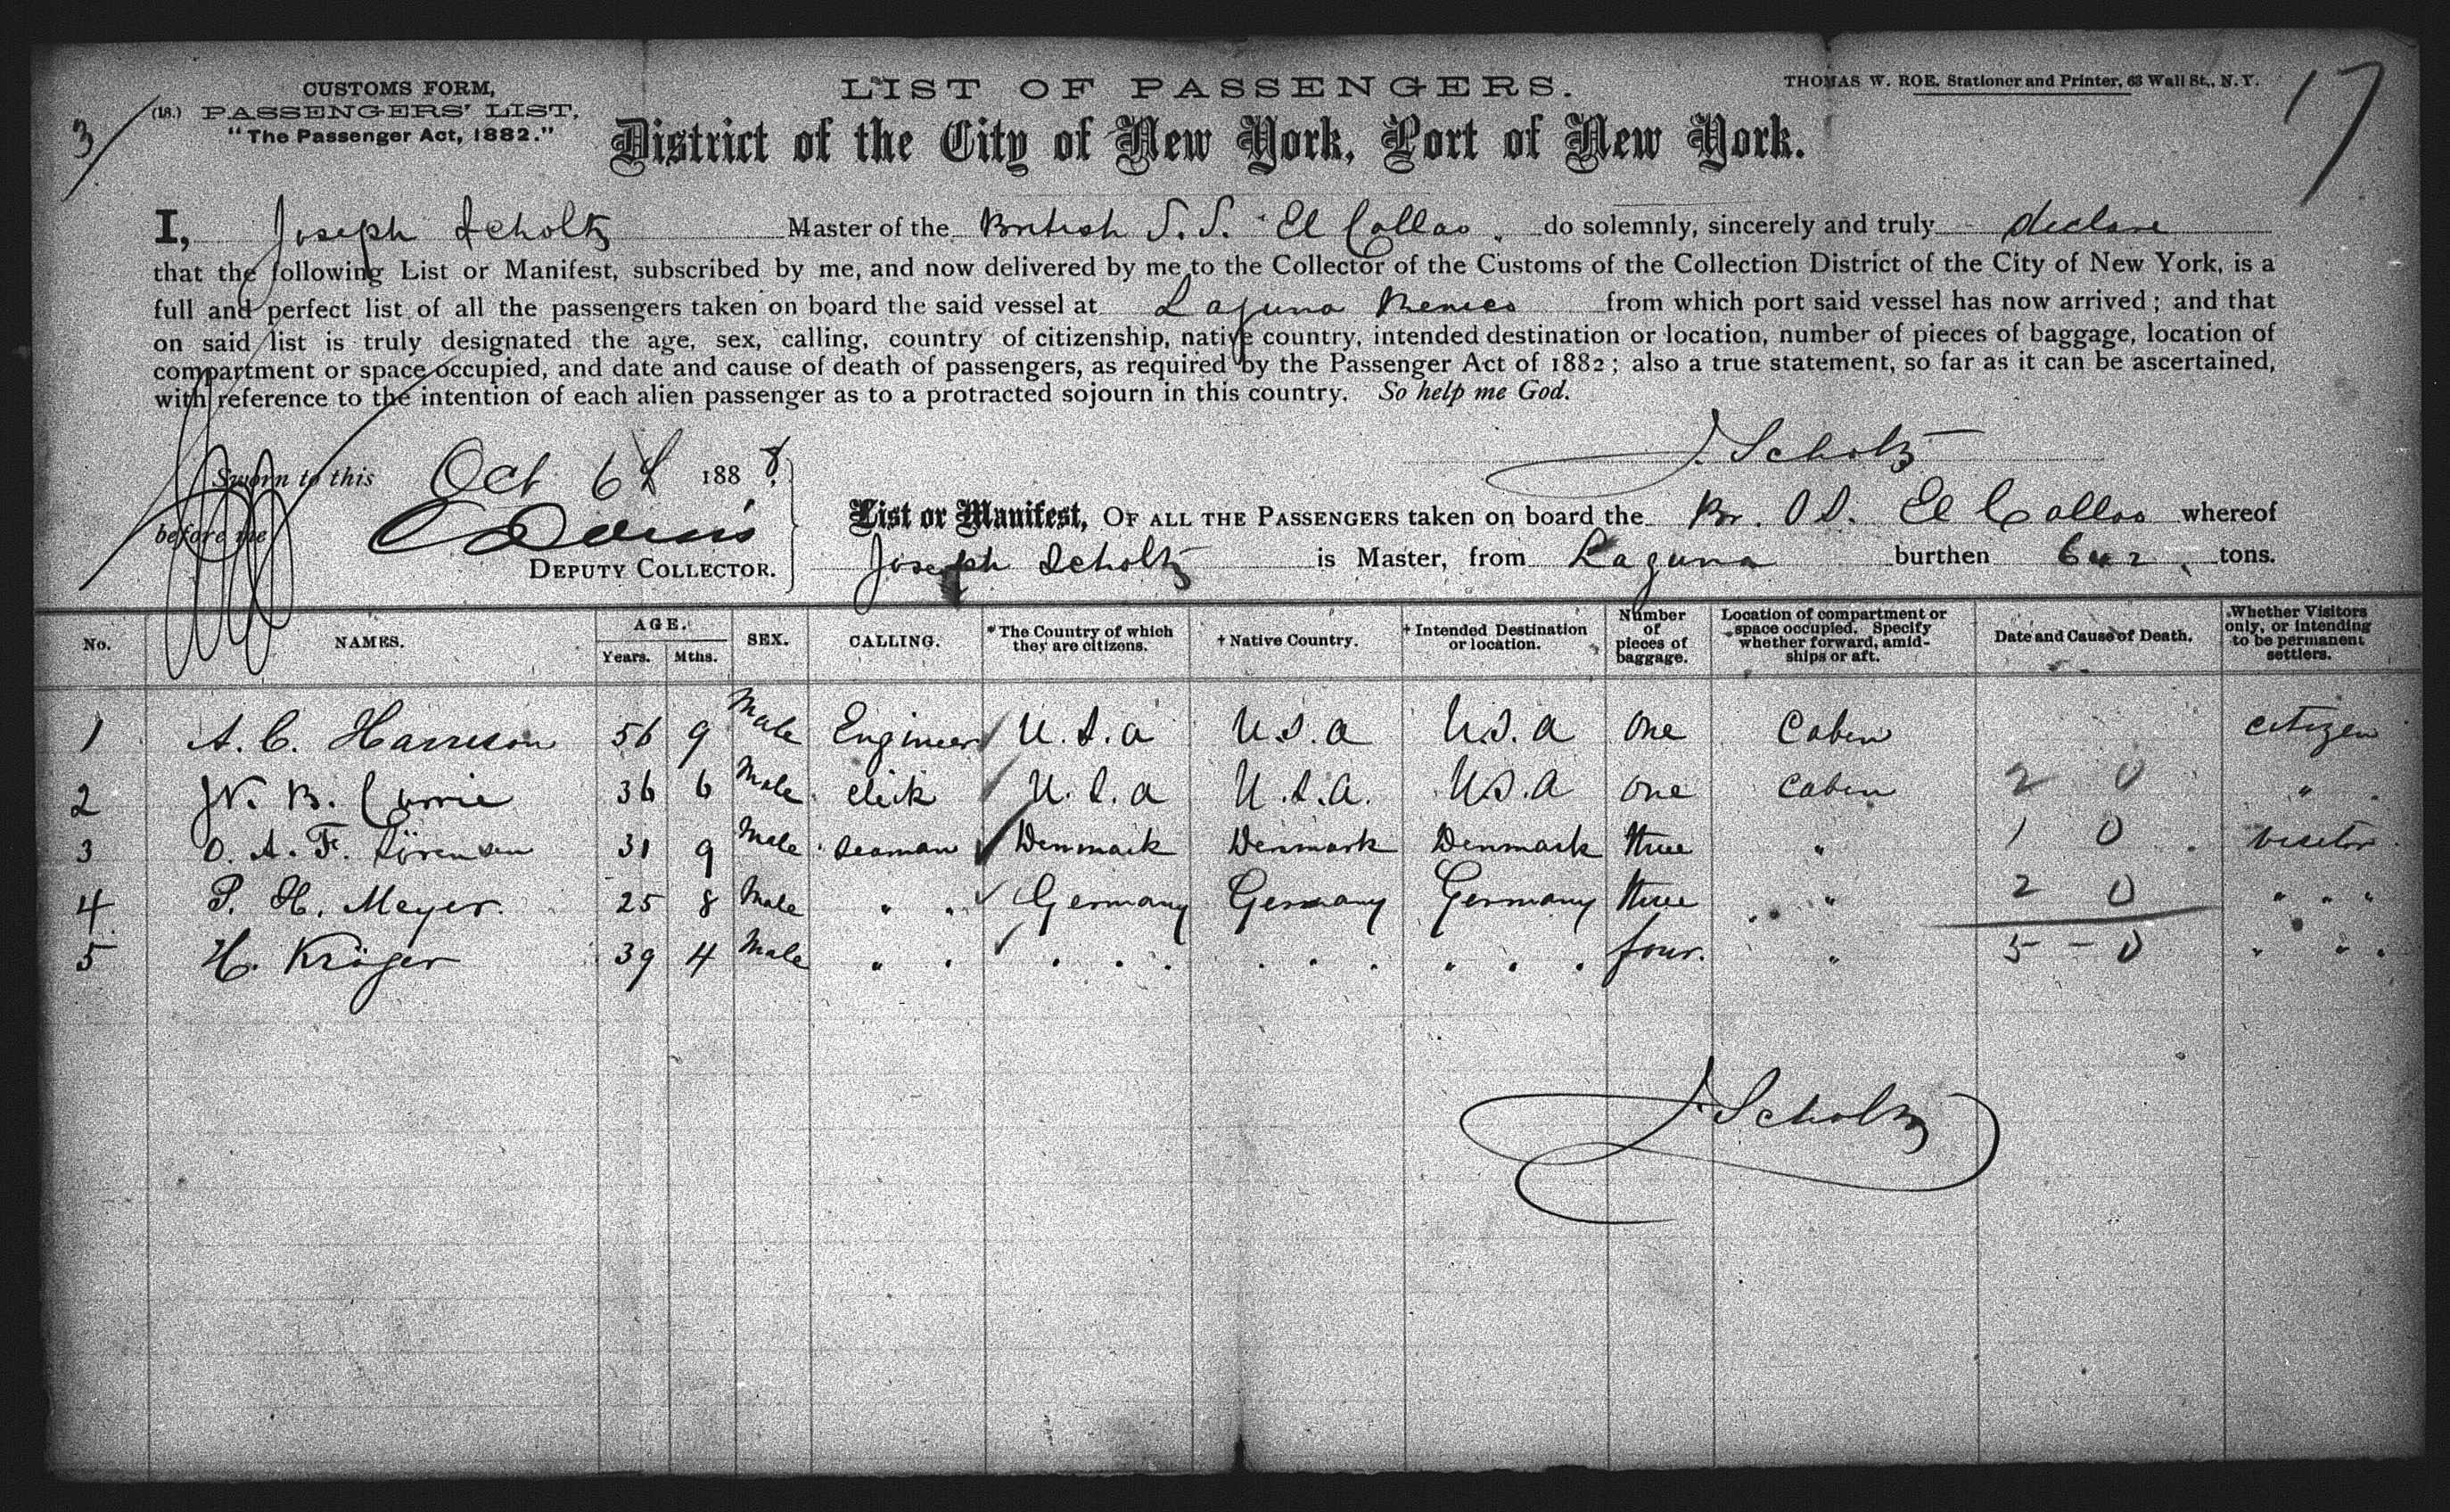 CUSTOMS FORM,
(18.) PASSENGERS' LIST,
"The Passenger Act, 1882."
3
LIST OF PASSENGERS.
THOMAS W. ROE, Stationer and Printer, 63 Wall St., N.Y.
17
District of the City of New York, Port of New York.
I, Joseph Scholtz Master of the British S.S. El Callao, do solemnly, sincerely and truly declare
that the following List or Manifest, subscribed by me, and now delivered by me to the Collector of the Customs of the Collection District of the City of New York, is a
full and perfect list of all the passengers taken on board the said vessel at Laguna Mexico from which port said vessel has now arrived; and that
on said list is truly designated the age, sex, calling, country of citizenship, native country, intended destination or location, number of pieces of baggage, location of
compartment or space occupied, and date and cause of death of passengers, as required by the Passenger Act of 1882; also a true statement, so far as it can be ascertained,
with reference to the intention of each alien passenger as to a protracted sojourn in this country. So help me God.
J Scholtz
Sworn to this Oct 6th 1888
before me
DEPUTY COLLECTOR.
List or Manifest, OF ALL THE PASSENGERS taken on board the Br. S.S. El Callao whereof
Joseph Scholtz is Master, from Laguna burthen tons.
No. NAMES. AGE. Years. Mths. SEX. CALLING. * The Country of which they are citizens. † Native Country. † Intended Destination or location. Number of pieces of baggage. Location of compartment or space occupied. Specify whether forward, amidships or aft. Date and Cause of Death. Whether Visitors only, or intending to be permanent settlers.
1 A. C. Harrison 56 9 Male Engineer U.S.a U.S.a U.S.a One Cabin citizen
2 W. B. Currie 36 6 Male clerk U.S.a U.S.a. U.S.a One Cabin 2 0 "
3 O. A. F. Sörensen 31 9 Male seaman Denmark Denmark Denmark three " 1 0 visitor
4 P. H. Meyer. 25 8 Male " " Germany Germany Germany three " 2 0 " " "
5 H. Kröger 39 4 Male " " " " " " " " " " " four. " 5 - 0 " " "
J Scholtz